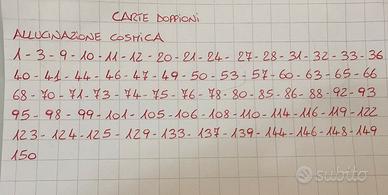 CARTE DOPPIONI
ALLUCINAZIONE COSMICA
1 - 3 - 9 - 10 - 11 - 12 - 20 - 21 - 24 - 27 - 28 - 31 - 32 - 33 - 36
40 - 41 - 44 - 46 - 47 - 49 - 50 - 53 - 57 - 60 - 63 - 65 - 66
68 - 70 - 71 - 73 - 74 - 75 - 76 - 78 - 80 - 85 - 86 - 88 - 92 - 93
95 - 98 - 99 - 101 - 105 - 106 - 108 - 110 - 114 - 116 - 119 - 122
123 - 124 - 125 - 129 - 133 - 137 - 139 - 144 - 146 - 148 - 149
150
subito